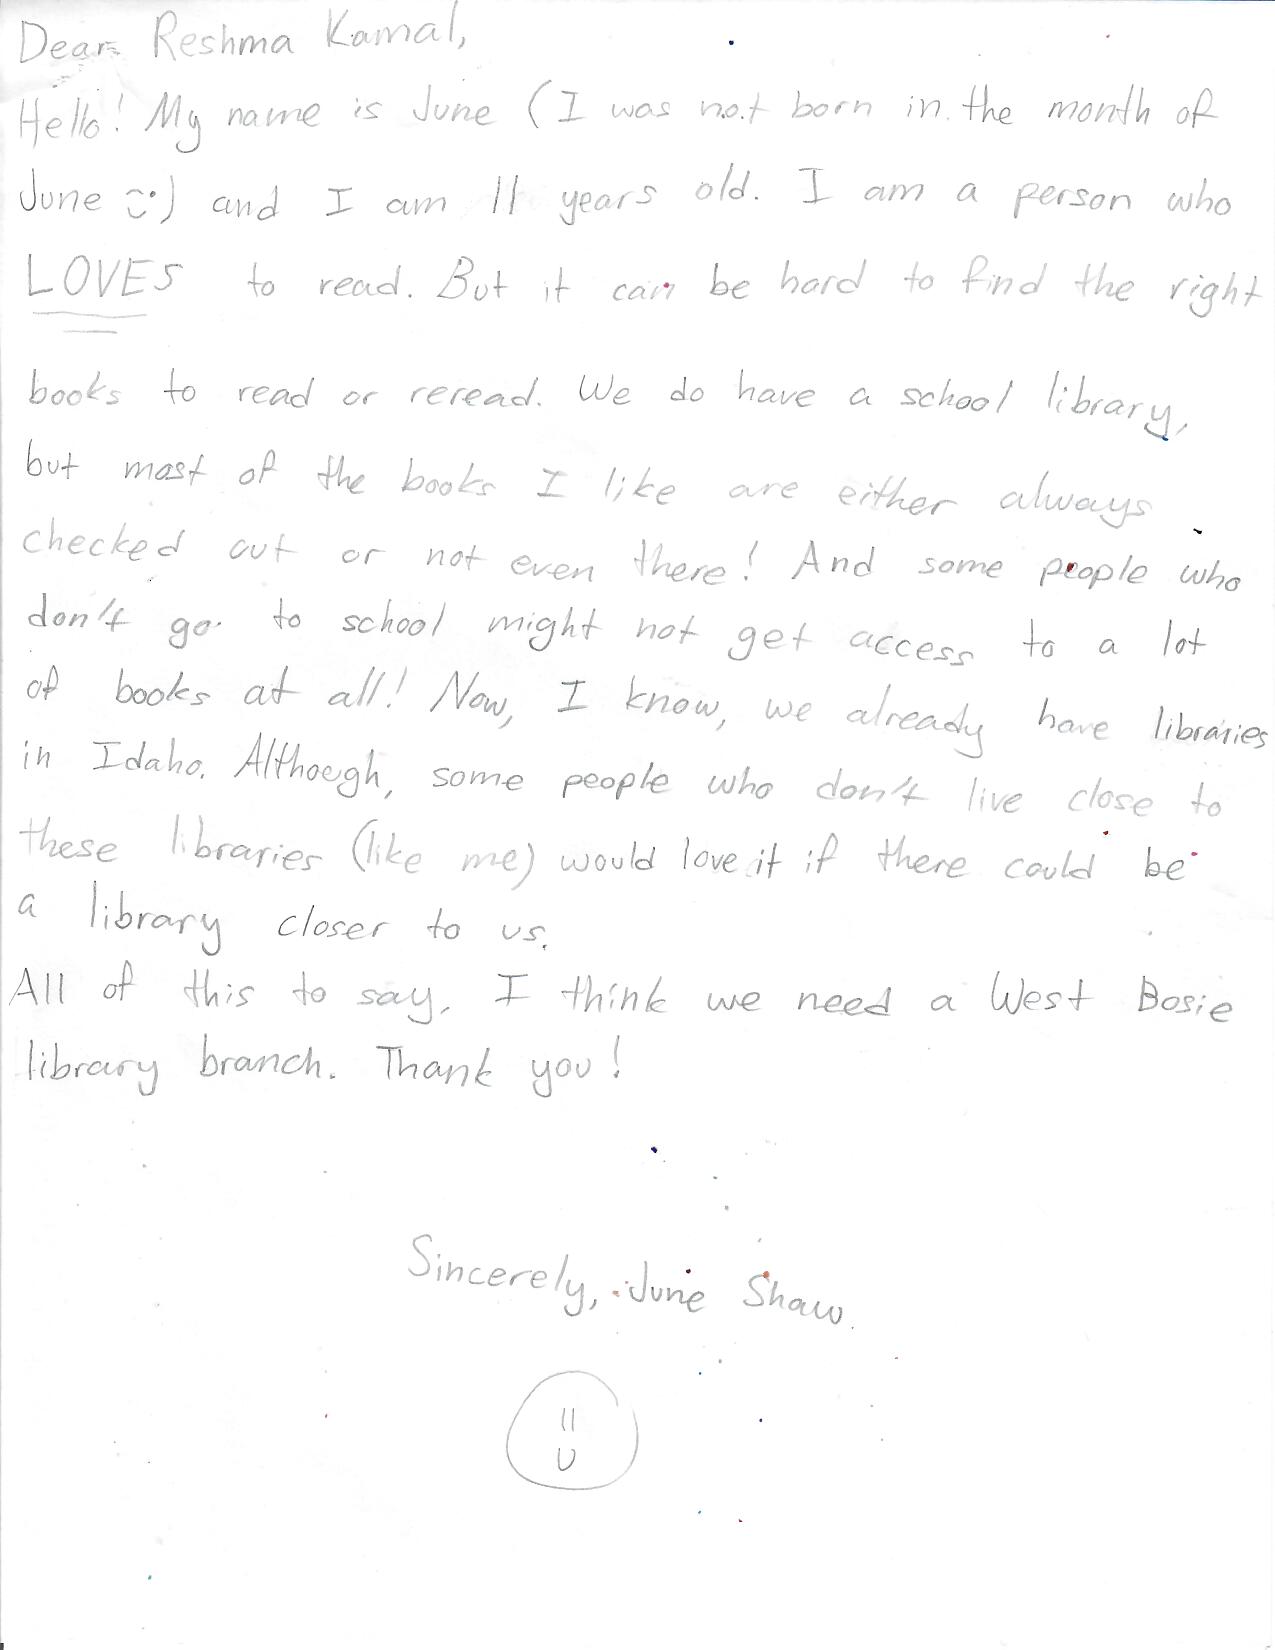 Dear Reshma Kamal,
Hello! My name is June (I was not born in the month of
June :) and I am 11 years old. I am a person who
LOVES to read. But it can be hard to find the right
books to read or reread. We do have a school library,
but most of the books I like are either always
checked out or not even there! And some people who
don't go to school might not get access to a lot
of books at all! Now, I know, we already have libraries
in Idaho. Although, some people who don't live close to
these libraries (like me) would love it if there could be
a library closer to us.
All of this to say, I think we need a West Bosie
library branch. Thank you!
Sincerely, June Shaw